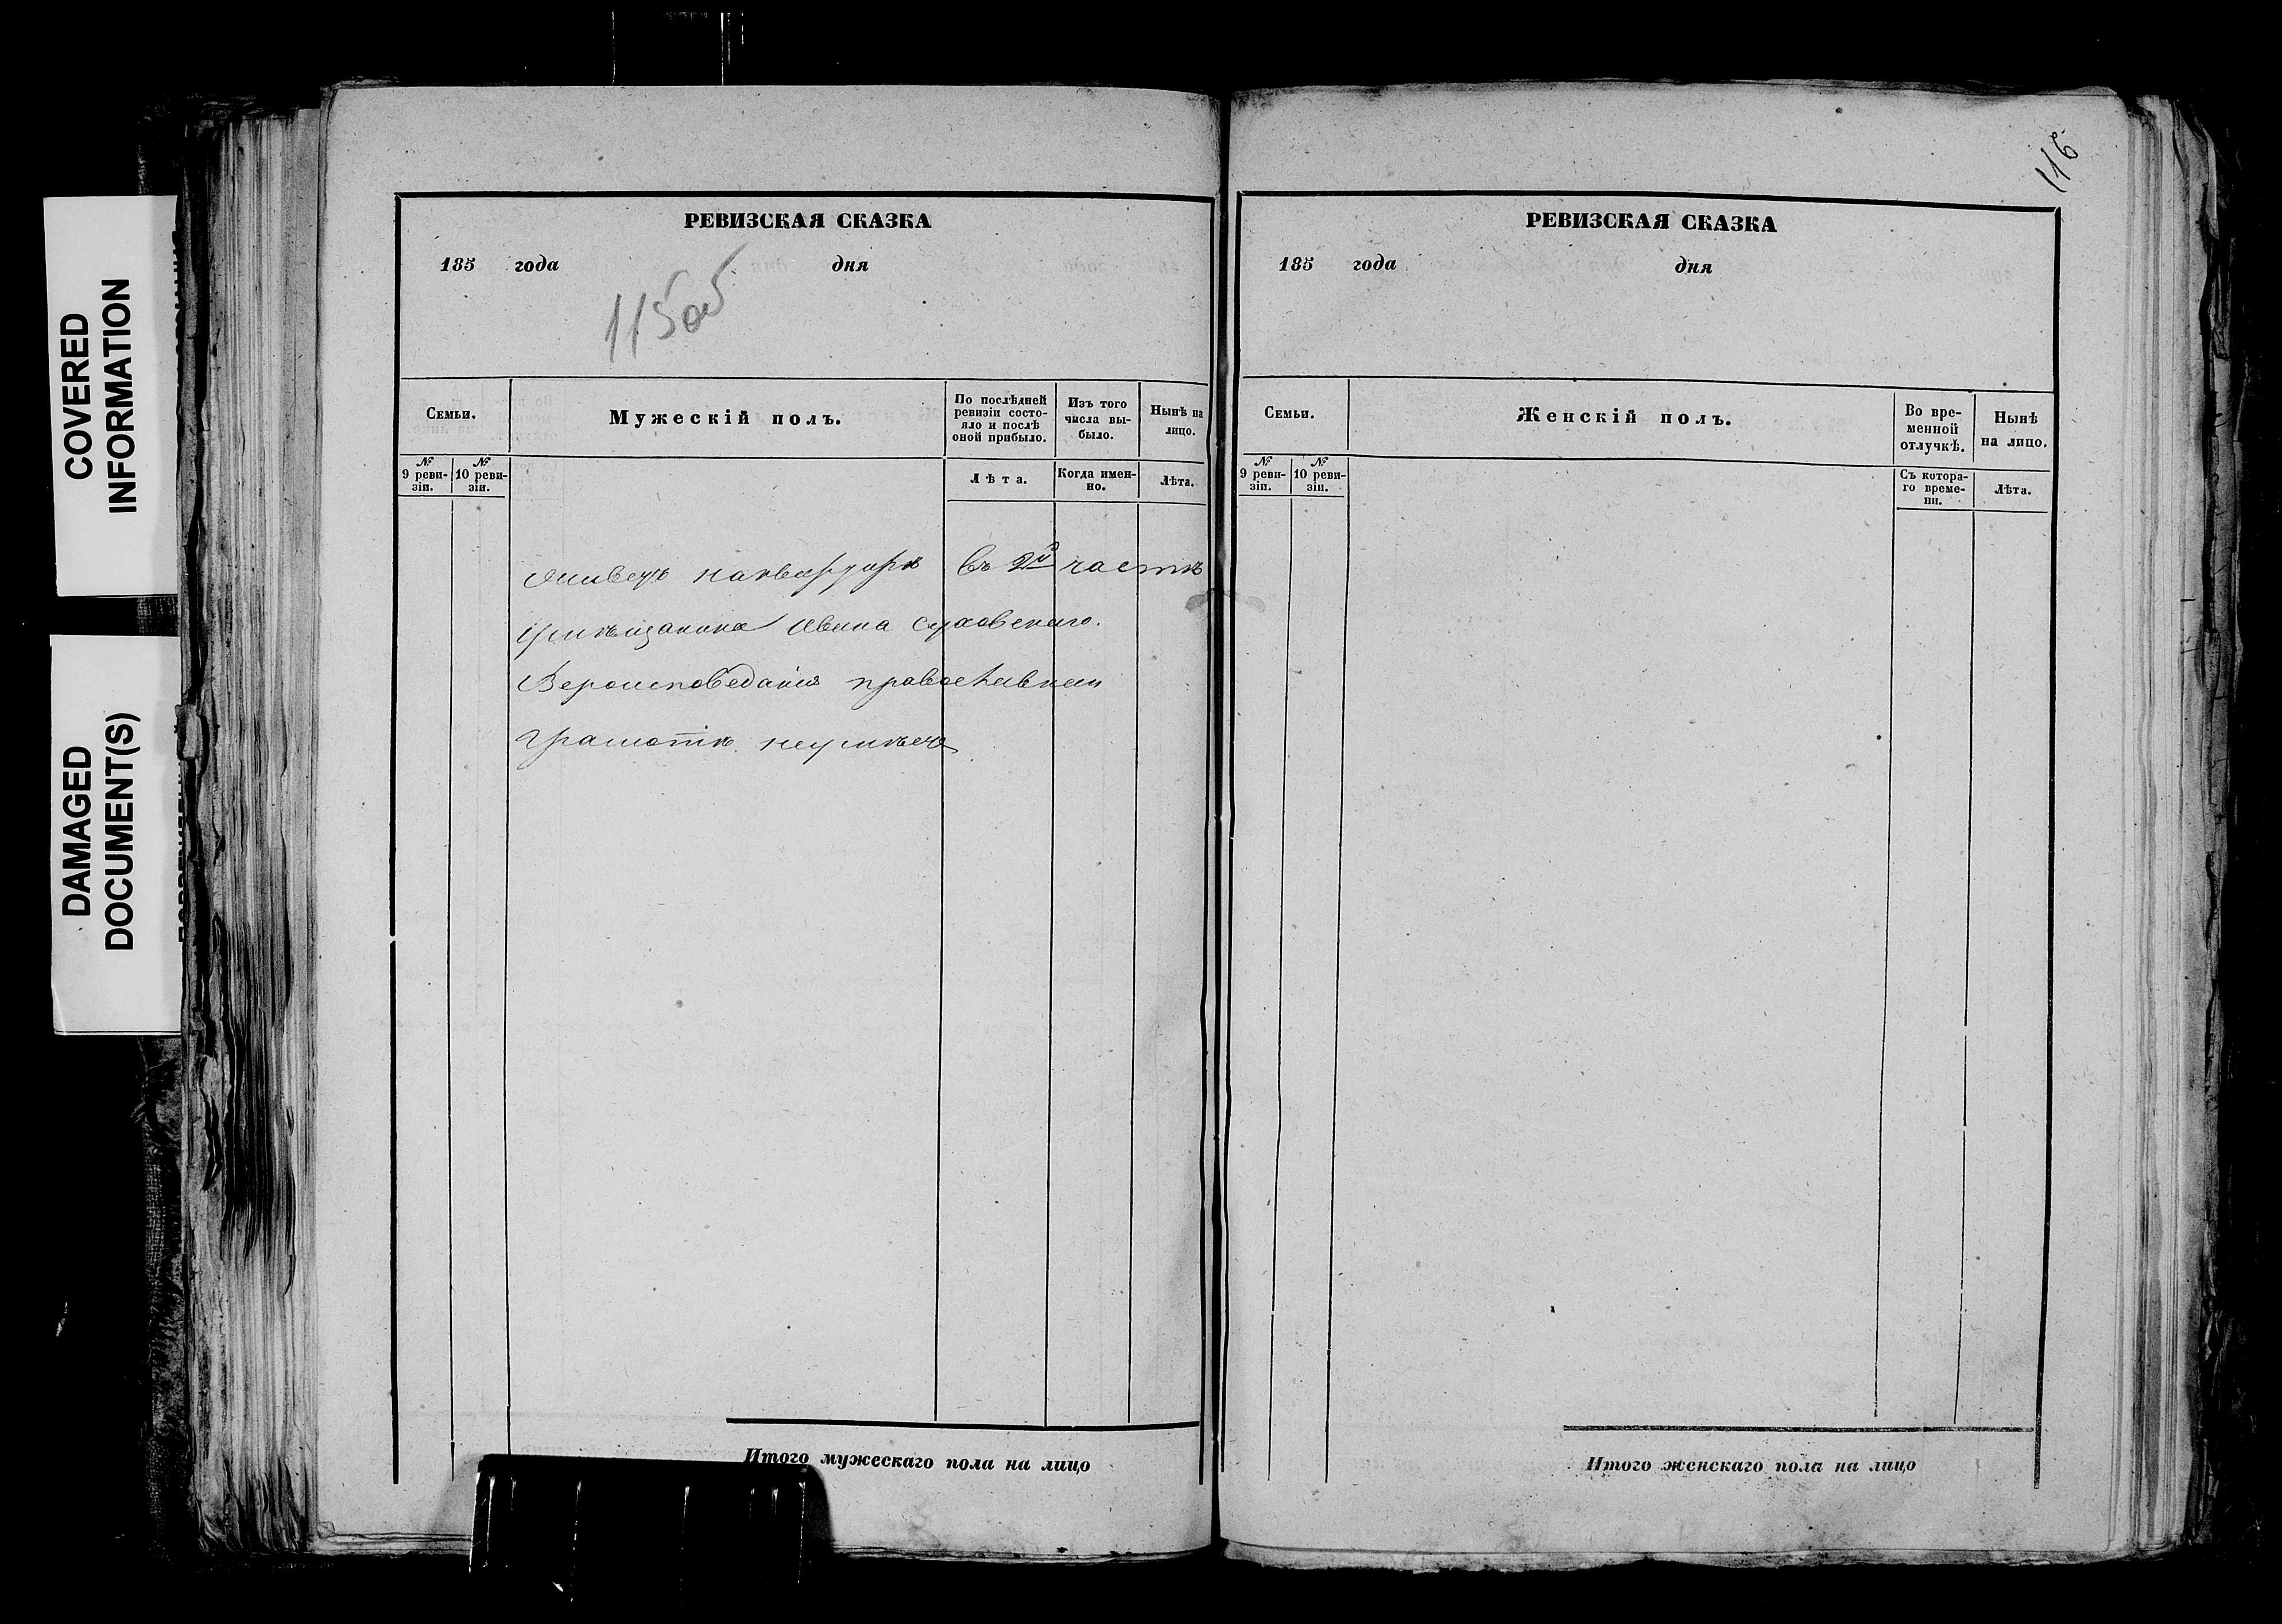 COVERED
INFORMATION
DAMAGED
DOCUMENT(S)
РЕВИЗСКАЯ СКАЗКА
185 года дня
115об
Семьи.
Мужескій полъ.
По послѣдней ревизіи состо-
яло и послѣ
оной прибыло.
Изъ того
числа вы-
было.
Нынѣ на
лицо.
№
9 реви-
зіи.
№
10 реви-
зіи.
Лѣта.
Когда имен-
но.
Лѣта.
живетъ наквартирѣ въ 2й части
Ивана Суховскаго.
Вероисповедания православнаго
Грамотѣ неумѣетъ
Итого мужескаго пола на лицо
116
РЕВИЗСКАЯ СКАЗКА
185 года дня
Семьи.
Женскій полъ.
Во вре-
менной
отлучкѣ.
Нынѣ
на лицо.
№
9 реви-
зіи.
№
10 реви-
зіи.
Съ котора-
го време-
ни.
Лѣта.
Итого женскаго пола на лицо